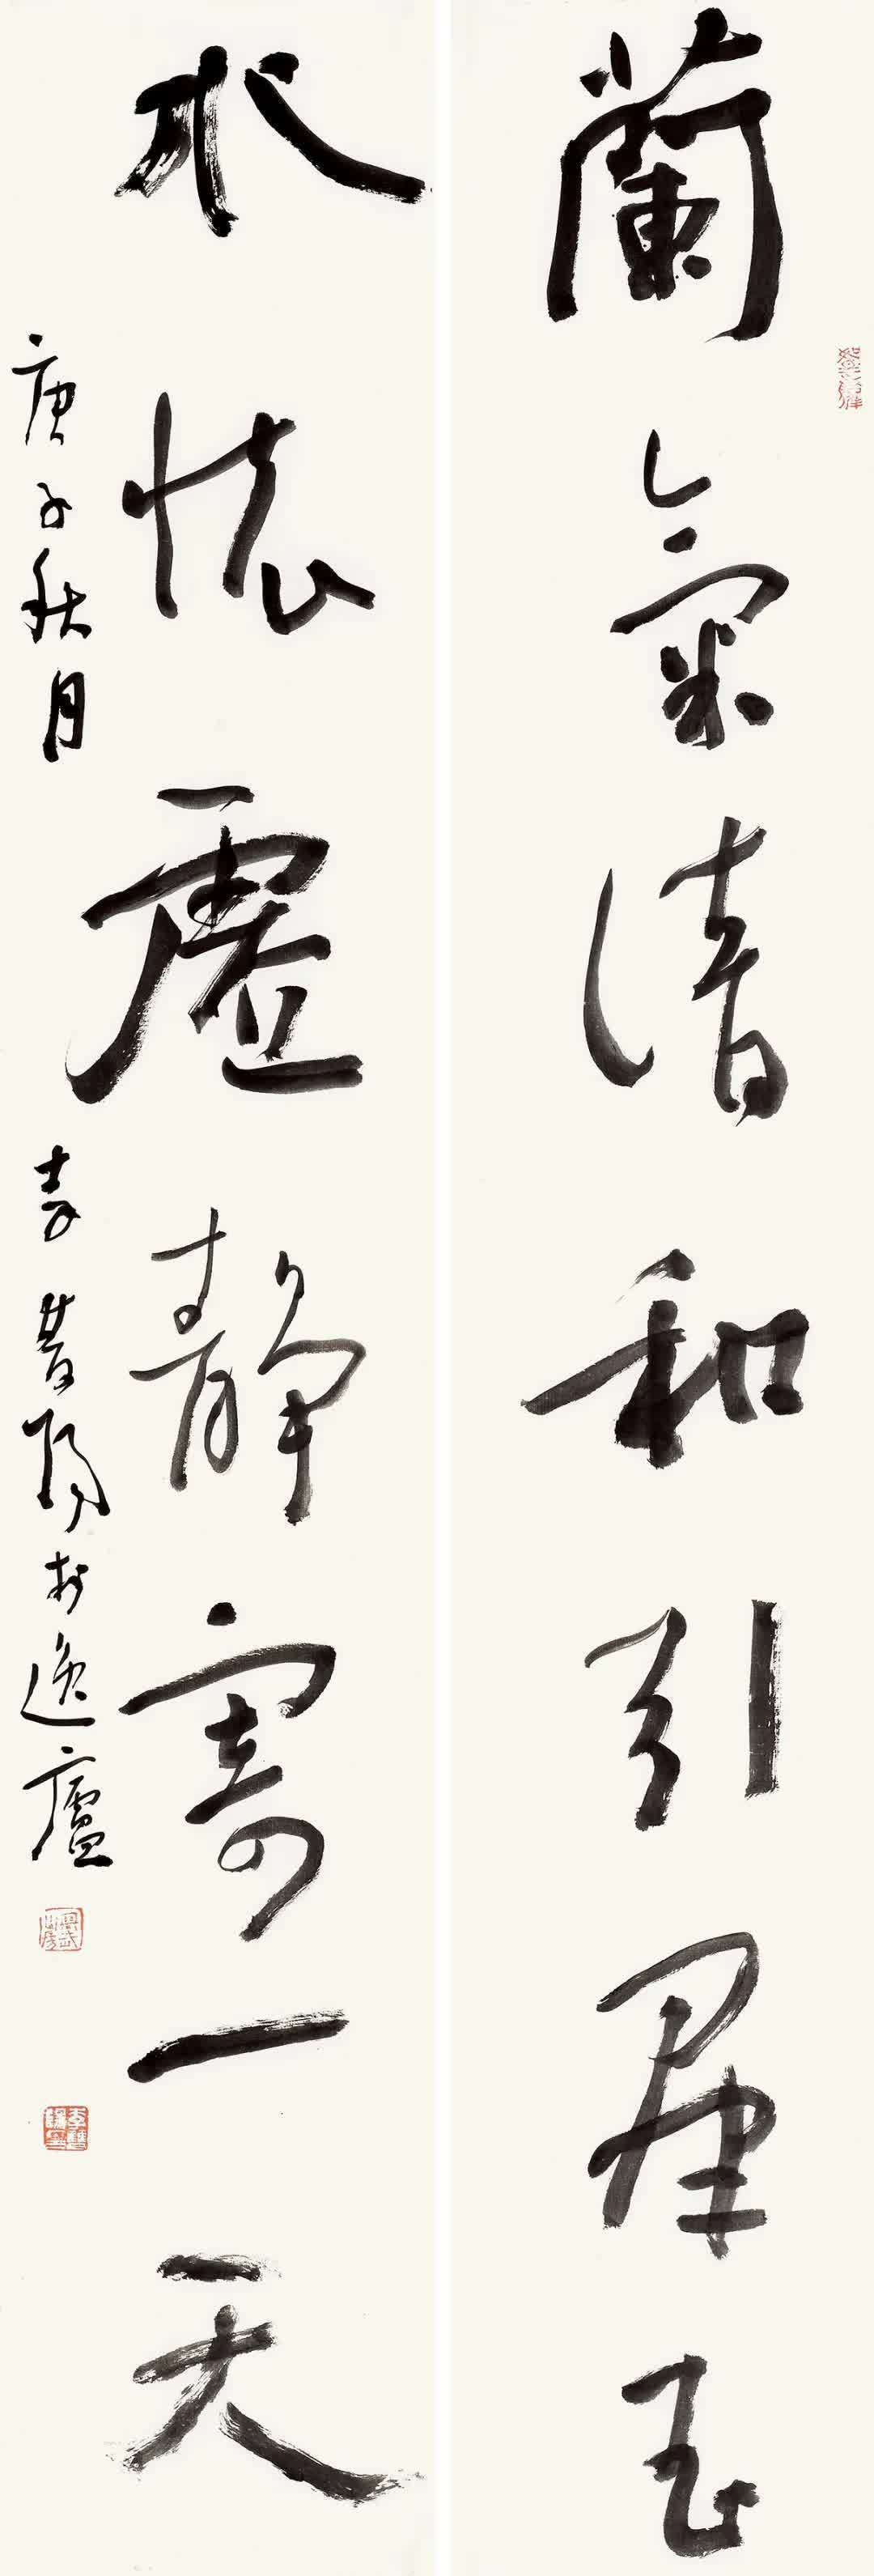 蘭氣清和引羣玉
水懷虛靜寄一天
庚子秋月
李雙陽於逸廬